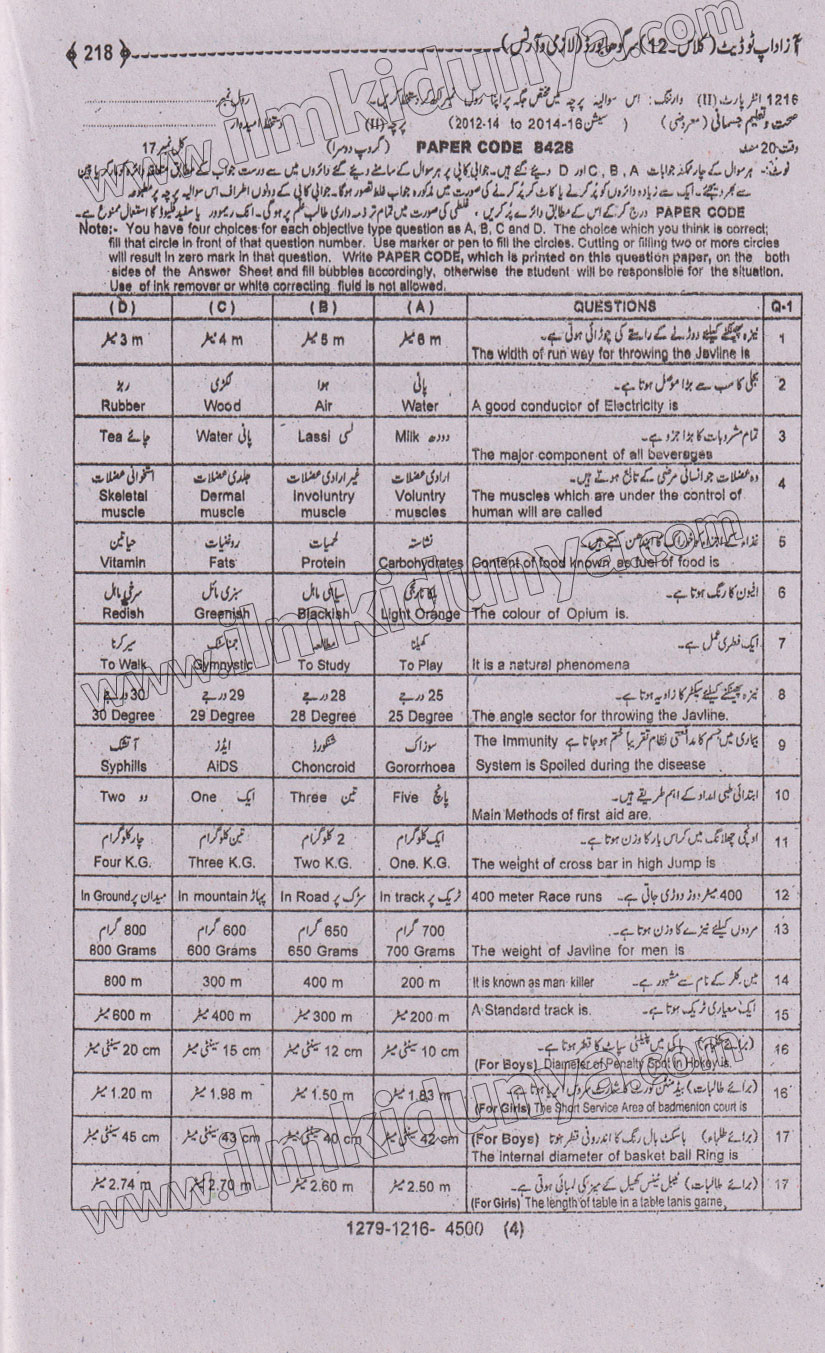 آزاد اپ ٹو ڈیٹ (کلاس-12) سرگودھا بورڈ (لازمی و آرٹس) ﴾218﴿
1216 انٹر پارٹ (II) وارننگ: اس سوالیہ پرچہ میں مختص جگہ پر اپنا رول نمبر لکھ کر دستخط کریں۔ رول نمبر
صحت و تعلیم جسمانی (معروضی) (سیشن 2014-16 to 2012-14) پرچہ (II) دستخط امیدوار
وقت-20 منٹ PAPER CODE 8428 (گروپ دوسرا) کل نمبر 17
نوٹ:- ہر سوال کے چار ممکنہ جوابات A ، B ، C اور D دیئے گئے ہیں۔ جوابی کاپی پر ہر سوال کے سامنے دیئے گئے دائروں میں سے درست جواب کے مطابق متعلقہ دائرہ کو مارکر یا پین
سے بھر دیجئے۔ ایک سے زیادہ دائروں کو پُر کرنے یا کاٹ کر پُر کرنے کی صورت میں مذکورہ جواب غلط تصور ہوگا۔ جوابی کاپی کے دونوں اطراف اس سوالیہ پرچہ پر مطبوعہ
PAPER CODE درج کر کے اس کے مطابق دائرے پُر کریں، غلطی کی صورت میں تمام تر ذمہ داری طالب علم پر ہوگی۔ انک ریمور یا سفید فلیوڈ کا استعمال ممنوع ہے۔
Note:- You have four choices for each objective type question as A, B, C and D. The choice which you think is correct;
fill that circle in front of that question number. Use marker or pen to fill the circles. Cutting or filling two or more circles
will result in zero mark in that question. Write PAPER CODE, which is printed on this question paper, on the both
sides of the Answer Sheet and fill bubbles accordingly, otherwise the student will be responsible for the situation.
Use of ink remover or white correcting fluid is not allowed.
(D) (C) (B) (A) QUESTIONS Q-1
نیزہ پھینکنے کیلئے دوڑنے کے راستے کی چوڑائی ہوتی ہے۔ 1
3 m میٹر 4 m میٹر 5 m میٹر 6 m میٹر The width of run way for throwing the Javline is
ربڑ لکڑی ہوا پانی بجلی کا سب سے بڑا موصل ہوتا ہے۔ 2
Rubber Wood Air Water A good conductor of Electricity is
Tea چائے Water پانی Lassi لسی Milk دودھ تمام مشروبات کا بڑا جزو ہے۔ 3
The major component of all beverages
استخوانی عضلات جلدی عضلات غیر ارادی عضلات ارادی عضلات وہ عضلات جو انسانی مرضی کے تابع ہوتے ہیں۔ 4
Skeletal Dermal Involuntry Voluntry The muscles which are under the control of
muscle muscle muscle muscles human will are called
حیاتین روغنیات لحمیات نشاستہ غذاء کے اجزاء کو خوراک کا ایندھن کہتے ہیں۔ 5
Vitamin Fats Protein Carbohydrates Content of food known as fuel of food is
سرخی مائل سبزی مائل سیاہی مائل ہلکا نارنجی افیون کا رنگ ہوتا ہے۔ 6
Redish Greenish Blackish Light Orange The colour of Opium is.
سیر کرنا جمناسٹک مطالعہ کھیلنا ایک فطری عمل ہے۔ 7
To Walk Gymnystic To Study To Play It is a natural phenomena
30 درجے 29 درجے 28 درجے 25 درجے نیزہ پھینکنے کیلئے سیکٹر کا زاویہ ہوتا ہے۔ 8
30 Degree 29 Degree 28 Degree 25 Degree The angle sector for throwing the Javline.
آتشک ایڈز شنکورڈ سوزاک بیماری میں جسم کا مدافعتی نظام تقریباً ختم ہو جاتا ہے The Immunity 9
Syphills AIDS Choncroid Gororrhoea System is Spoiled during the disease
Two دو One ایک Three تین Five پانچ ابتدائی طبی امداد کے اہم طریقے ہیں۔ 10
Main Methods of first aid are.
چار کلوگرام تین کلوگرام 2 کلوگرام ایک کلوگرام اونچی چھلانگ میں کراس بار کا وزن ہوتا ہے۔ 11
Four K.G. Three K.G. Two K.G. One. K.G. The weight of cross bar in high Jump is
In Ground میدان پر In mountain پہاڑ In Road سڑک پر In track ٹریک پر 400 meter Race runs 400 میٹر دوڑ دوڑی جاتی ہے۔ 12
800 گرام 600 گرام 650 گرام 700 گرام مردوں کیلئے نیزے کا وزن ہوتا ہے۔ 13
800 Grams 600 Grams 650 Grams 700 Grams The weight of Javline for men is
800 m 300 m 400 m 200 m It is known as man killer مین کلر کے نام سے مشہور ہے۔ 14
600 m میٹر 400 m میٹر 300 m میٹر 200 m میٹر A Standard track is. ایک معیاری ٹریک ہوتا ہے۔ 15
20 cm سینٹی میٹر 15 cm سینٹی میٹر 12 cm سینٹی میٹر 10 cm سینٹی میٹر (برائے طلباء) ہاکی میں پینلٹی سپاٹ کا قطر ہوتا ہے۔ 16
(For Boys) Diameter of Penalty Spot in Hokey is.
1.20 m میٹر 1.98 m میٹر 1.50 m میٹر 1.83 m میٹر (برائے طالبات) بیڈمنٹن کورٹ کا شارٹ سروس ایریا ہوتا ہے۔ 16
(For Girls) The Short Service Area of badmenton court is
45 cm سینٹی میٹر 43 cm سینٹی میٹر 40 cm سینٹی میٹر 42 cm سینٹی میٹر (For Boys) (برائے طلباء) باسکٹ بال رنگ کا اندرونی قطر ہوتا 17
The internal diameter of basket ball Ring is
2.74 m میٹر 2.70 m میٹر 2.60 m میٹر 2.50 m میٹر (برائے طالبات) ٹیبل ٹینس کھیل کے میز کی لمبائی ہوتی ہے۔ 17
(For Girls) The length of table in a table tanis game.
1279-1216- 4500 (4)
www.ilmkidunya.com
www.ilmkidunya.com
www.ilmkidunya.com